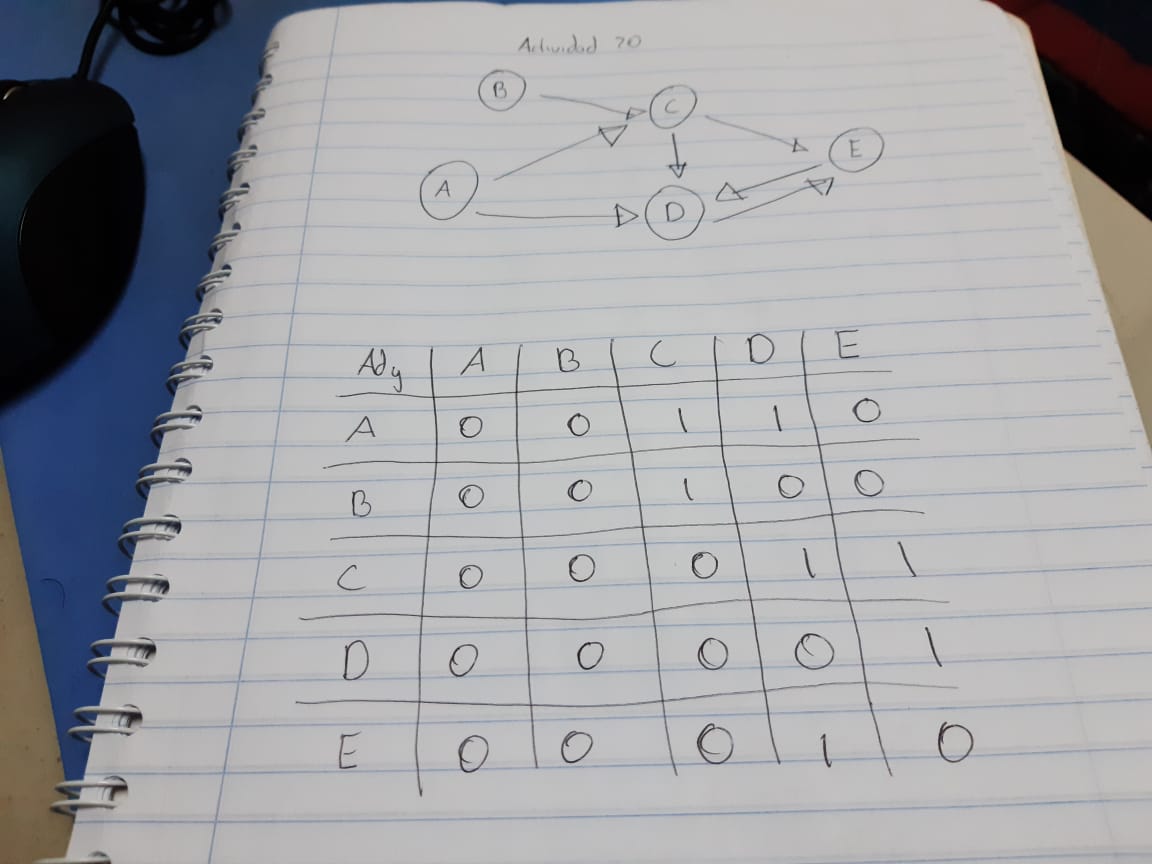 Actividad 20
B
C
E
A
D
Ady A B C D E
A 0 0 1 1 0
B 0 0 1 0 0
C 0 0 0 1 1
D 0 0 0 0 1
E 0 0 0 1 0